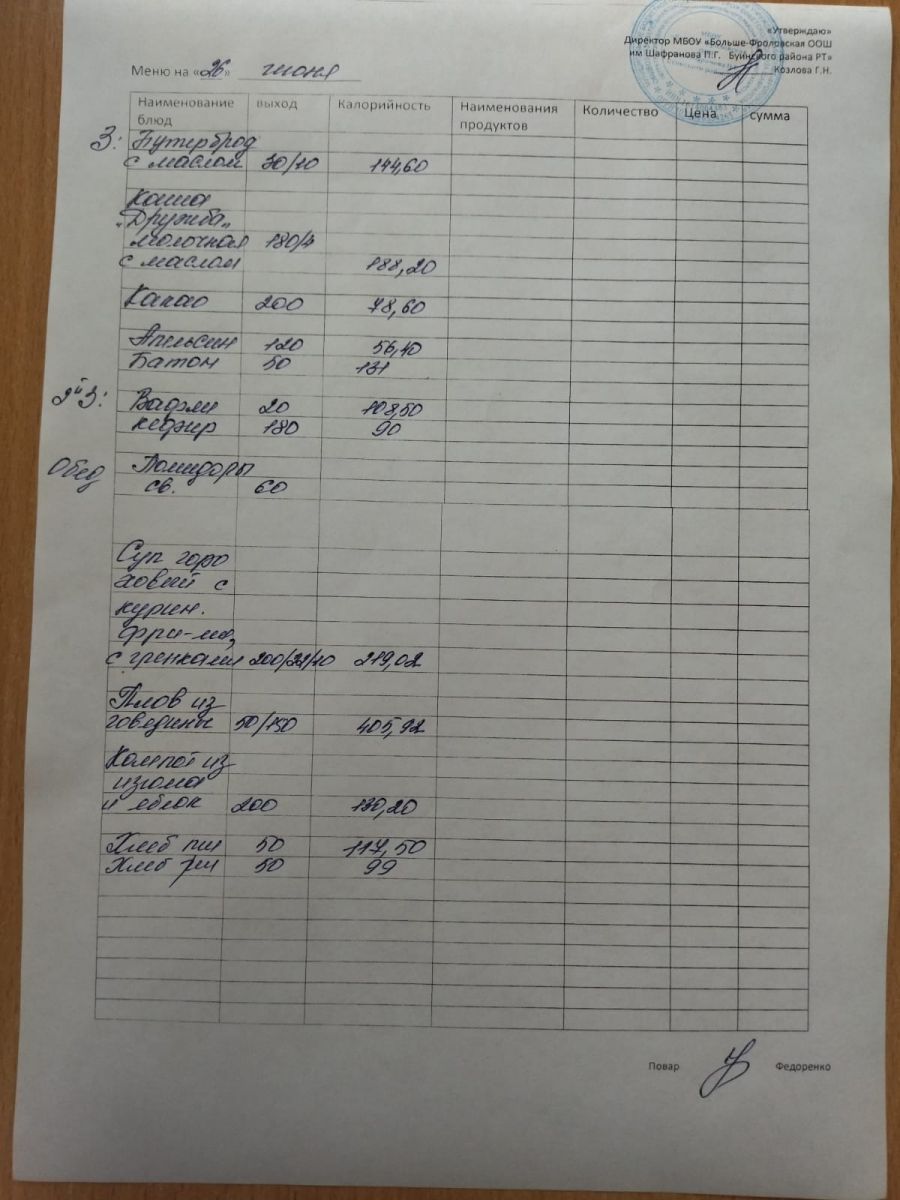 «Утверждаю»
Директор МБОУ «Больше-Фроловская ООШ
им Шафранова П.Г. Буинского района РТ»
Козлова Г.Н.
Меню на «26» июня
Наименование блюд выход Калорийность Наименования продуктов Количество Цена сумма
З: Бутерброд
с маслом 30/10 144,60
Каша
"Дружба"
молочная 180/4
с маслом 188,20
Какао 200 78,60
Апельсин 120 56,40
Батон 50 131
2й З: Вафли 20 108,50
кефир 180 90
Обед Помидоры
св. 60
Суп горо
ховый с
курин.
фри-ми,
с гренками 200/22/10 219,02
Плов из
говядины 50/150 405,92
Компот из
изюма
и яблок 200 130,20
Хлеб пш 50 117,50
Хлеб рж 50 99
Повар Федоренко